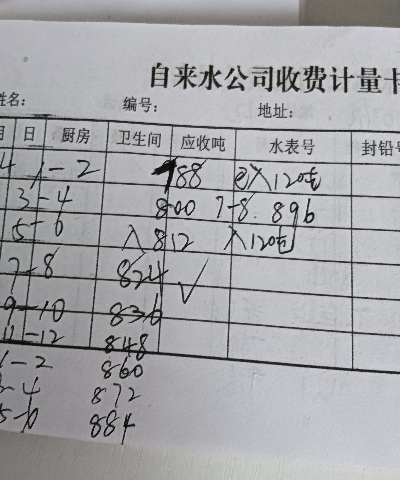 自来水公司收费计量卡
姓名： 编号： 地址：
月 日 厨房 卫生间 应收吨 水表号 封铅号
1-2 788 入120吨
3-4 800 7-8. 896
5-6 入812 入120吨
7-8 824 ✓
9-10 836
11-12 848
1-2 860
3-4 872
5-6 884